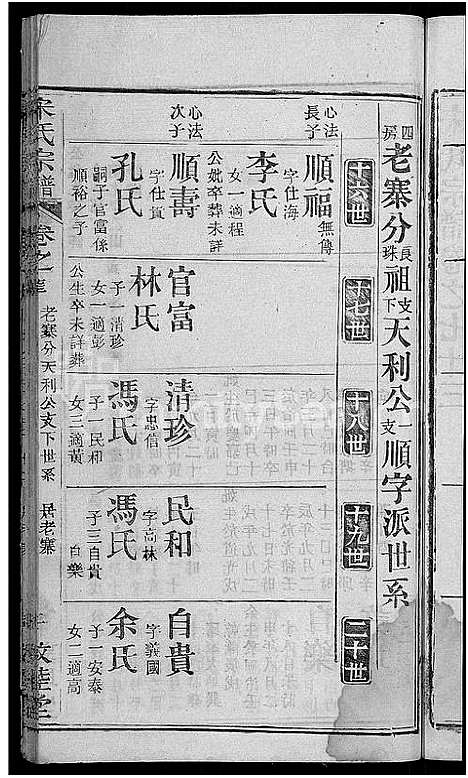 四房老寨分良珠祖支下天利公一支順字派世系
十六世
十七世
十八世
十九世
二十世
心法長子
順福
無傳
李氏
字仕海
女一適程
公妣卒葬未詳
心法次子
順壽
字仕賞
孔氏
嗣子官富係
順裕之子
官富
林氏
子一清珍
女一適彭
公生卒未詳葬
清珍
字忠信
馮氏
子一民和
女三適黃
民和
字高林
馮氏
子三自貴
自樂
自貴
字義國
余氏
子一安泰
女二適高
宋氏宗譜
卷之
老寨分天利公支下世系
居老寨
敦睦堂